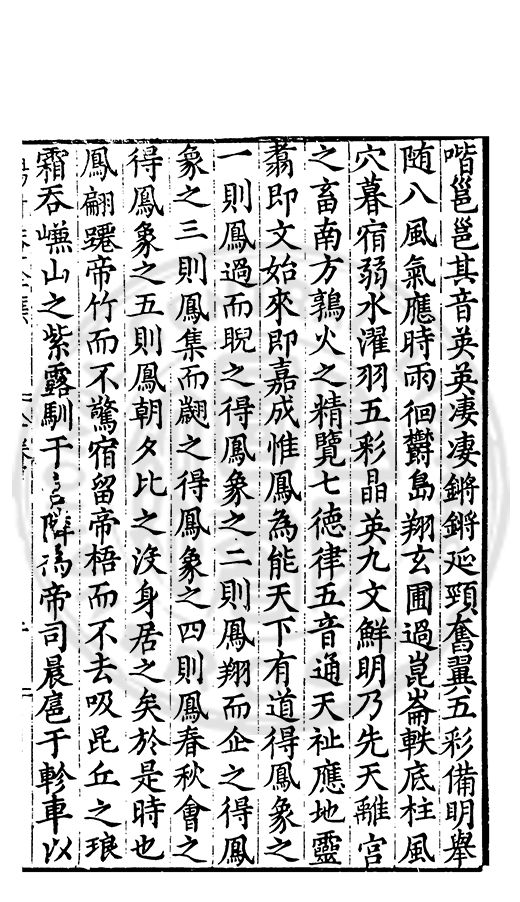 喈邕邕其音英英淒淒鏘鏘延頸奮翼五彩備明舉
随八風氣應時雨徊欝島翔玄圃過崑崙軼底柱風
穴暮宿弱水濯羽五彩晶英九文鮮明乃先天離宫
之畜南方鶉火之精覽七德律五音通天祉應地靈
翥即文始來即嘉成惟鳳為能天下有道得鳳象之
一則鳳過而睨之得鳳象之二則鳳翔而企之得鳳
象之三則鳳集而翽之得鳳象之四則鳳春秋會之
得鳳象之五則鳳朝夕比之沒身居之矣於是時也
鳳翩躚帝竹而不驚宿留帝梧而不去吸昆丘之琅
霜吞㠗山之紫露馴于帝司晨扈于軫車以